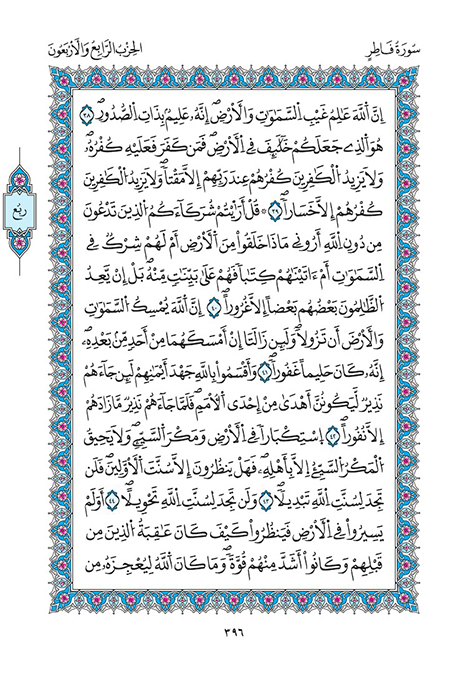 سُورَةُ فَاطِرٍ
الحِزْبُ الرَّابِعُ وَالأَرْبَعُونَ
إِنَّ اَ۬للَّهَ عَٰلِمُ غَيْبِ اِ۬لسَّمَٰوَٰتِ وَالَارْضِۖ إِنَّهُۥ عَلِيمُۢ بِذَاتِ اِ۬لصُّدُورِۖ ٣٨
هُوَ اَ۬لذِے جَعَلَكُمْ خَلَٰٓئِفَ فِے اِ۬لَارْضِۖ فَمَن كَفَرَ فَعَلَيْهِ كُفْرُهُۥۖ
وَلَا يَزِيدُ اُ۬لْكَٰفِرِينَ كُفْرُهُمْ عِندَ رَبِّهِمُۥٓ إِلَّا مَقْتاٗۖ وَلَا يَزِيدُ اُ۬لْكَٰفِرِينَ
كُفْرُهُمُۥٓ إِلَّا خَسَاراٗۖ ٣٩ قُلَ اَرَٰٓيْتُمْ شُرَكَآءَكُمُ اُ۬لذِينَ تَدْعُونَ
مِن دُونِ اِ۬للَّهِ أَرُونِے مَاذَا خَلَقُواْ مِنَ اَ۬لَارْضِ أَمْ لَهُمْ شِرْكٞ فِے
اِ۬لسَّمَٰوَٰتِ أَمَ اٰتَيْنَٰهُمْ كِتَٰباٗ فَهُمْ عَلَىٰ بَيِّنَٰتٖ مِّنْهُۖ بَلِ اِنْ يَّعِدُ
اُ۬لظَّٰلِمُونَ بَعْضُهُم بَعْضاً اِلَّا غُرُوراًۖ ٤٠ اِنَّ اَ۬للَّهَ يُمْسِكُ اُ۬لسَّمَٰوَٰتِ
وَالَارْضَ أَن تَزُولَاۖ وَلَئِن زَالَتَآ إِنَ اَمْسَكَهُمَا مِنَ اَحَدٖ مِّنۢ بَعْدِهِۦٓۖ
إِنَّهُۥ كَانَ حَلِيماً غَفُوراٗۖ ٤١ وَأَقْسَمُواْ بِاللَّهِ جَهْدَ أَيْمَٰنِهِمْ لَئِن جَآءَهُمْ
نَذِيرٞ لَّيَكُونُنَّ أَهْدَىٰ مِنِ اِحْدَى اَ۬لُامَمِۖ فَلَمَّا جَآءَهُمْ نَذِيرٞ مَّا زَادَهُمُۥٓ
إِلَّا نُفُوراًۖ ٤٢ اِ۪سْتِكْبَاراٗ فِے اِ۬لَارْضِ وَمَكْرَ اَ۬لسَّيِّےِٕۖ وَلَا يَحِيقُ
اُ۬لْمَكْرُ اُ۬لسَّيِّئُ اِلَّا بِأَهْلِهِۦۖ فَهَلْ يَنظُرُونَ إِلَّا سُنَّتَ اَ۬لَاوَّلِينَۖ فَلَن
تَجِدَ لِسُنَّتِ اِ۬للَّهِ تَبْدِيلاٗۖ ٤٣ وَلَن تَجِدَ لِسُنَّتِ اِ۬للَّهِ تَحْوِيلاًۖ ٤٤ اَوَلَمْ
يَسِيرُواْ فِے اِ۬لَارْضِ فَيَنظُرُواْ كَيْفَ كَانَ عَٰقِبَةُ اُ۬لذِينَ مِن
قَبْلِهِمْ وَكَانُوٓاْ أَشَدَّ مِنْهُمْ قُوَّةٗۖ وَمَا كَانَ اَ۬للَّهُ لِيُعْجِزَهُۥ مِن
رُبُع
٣٩٦